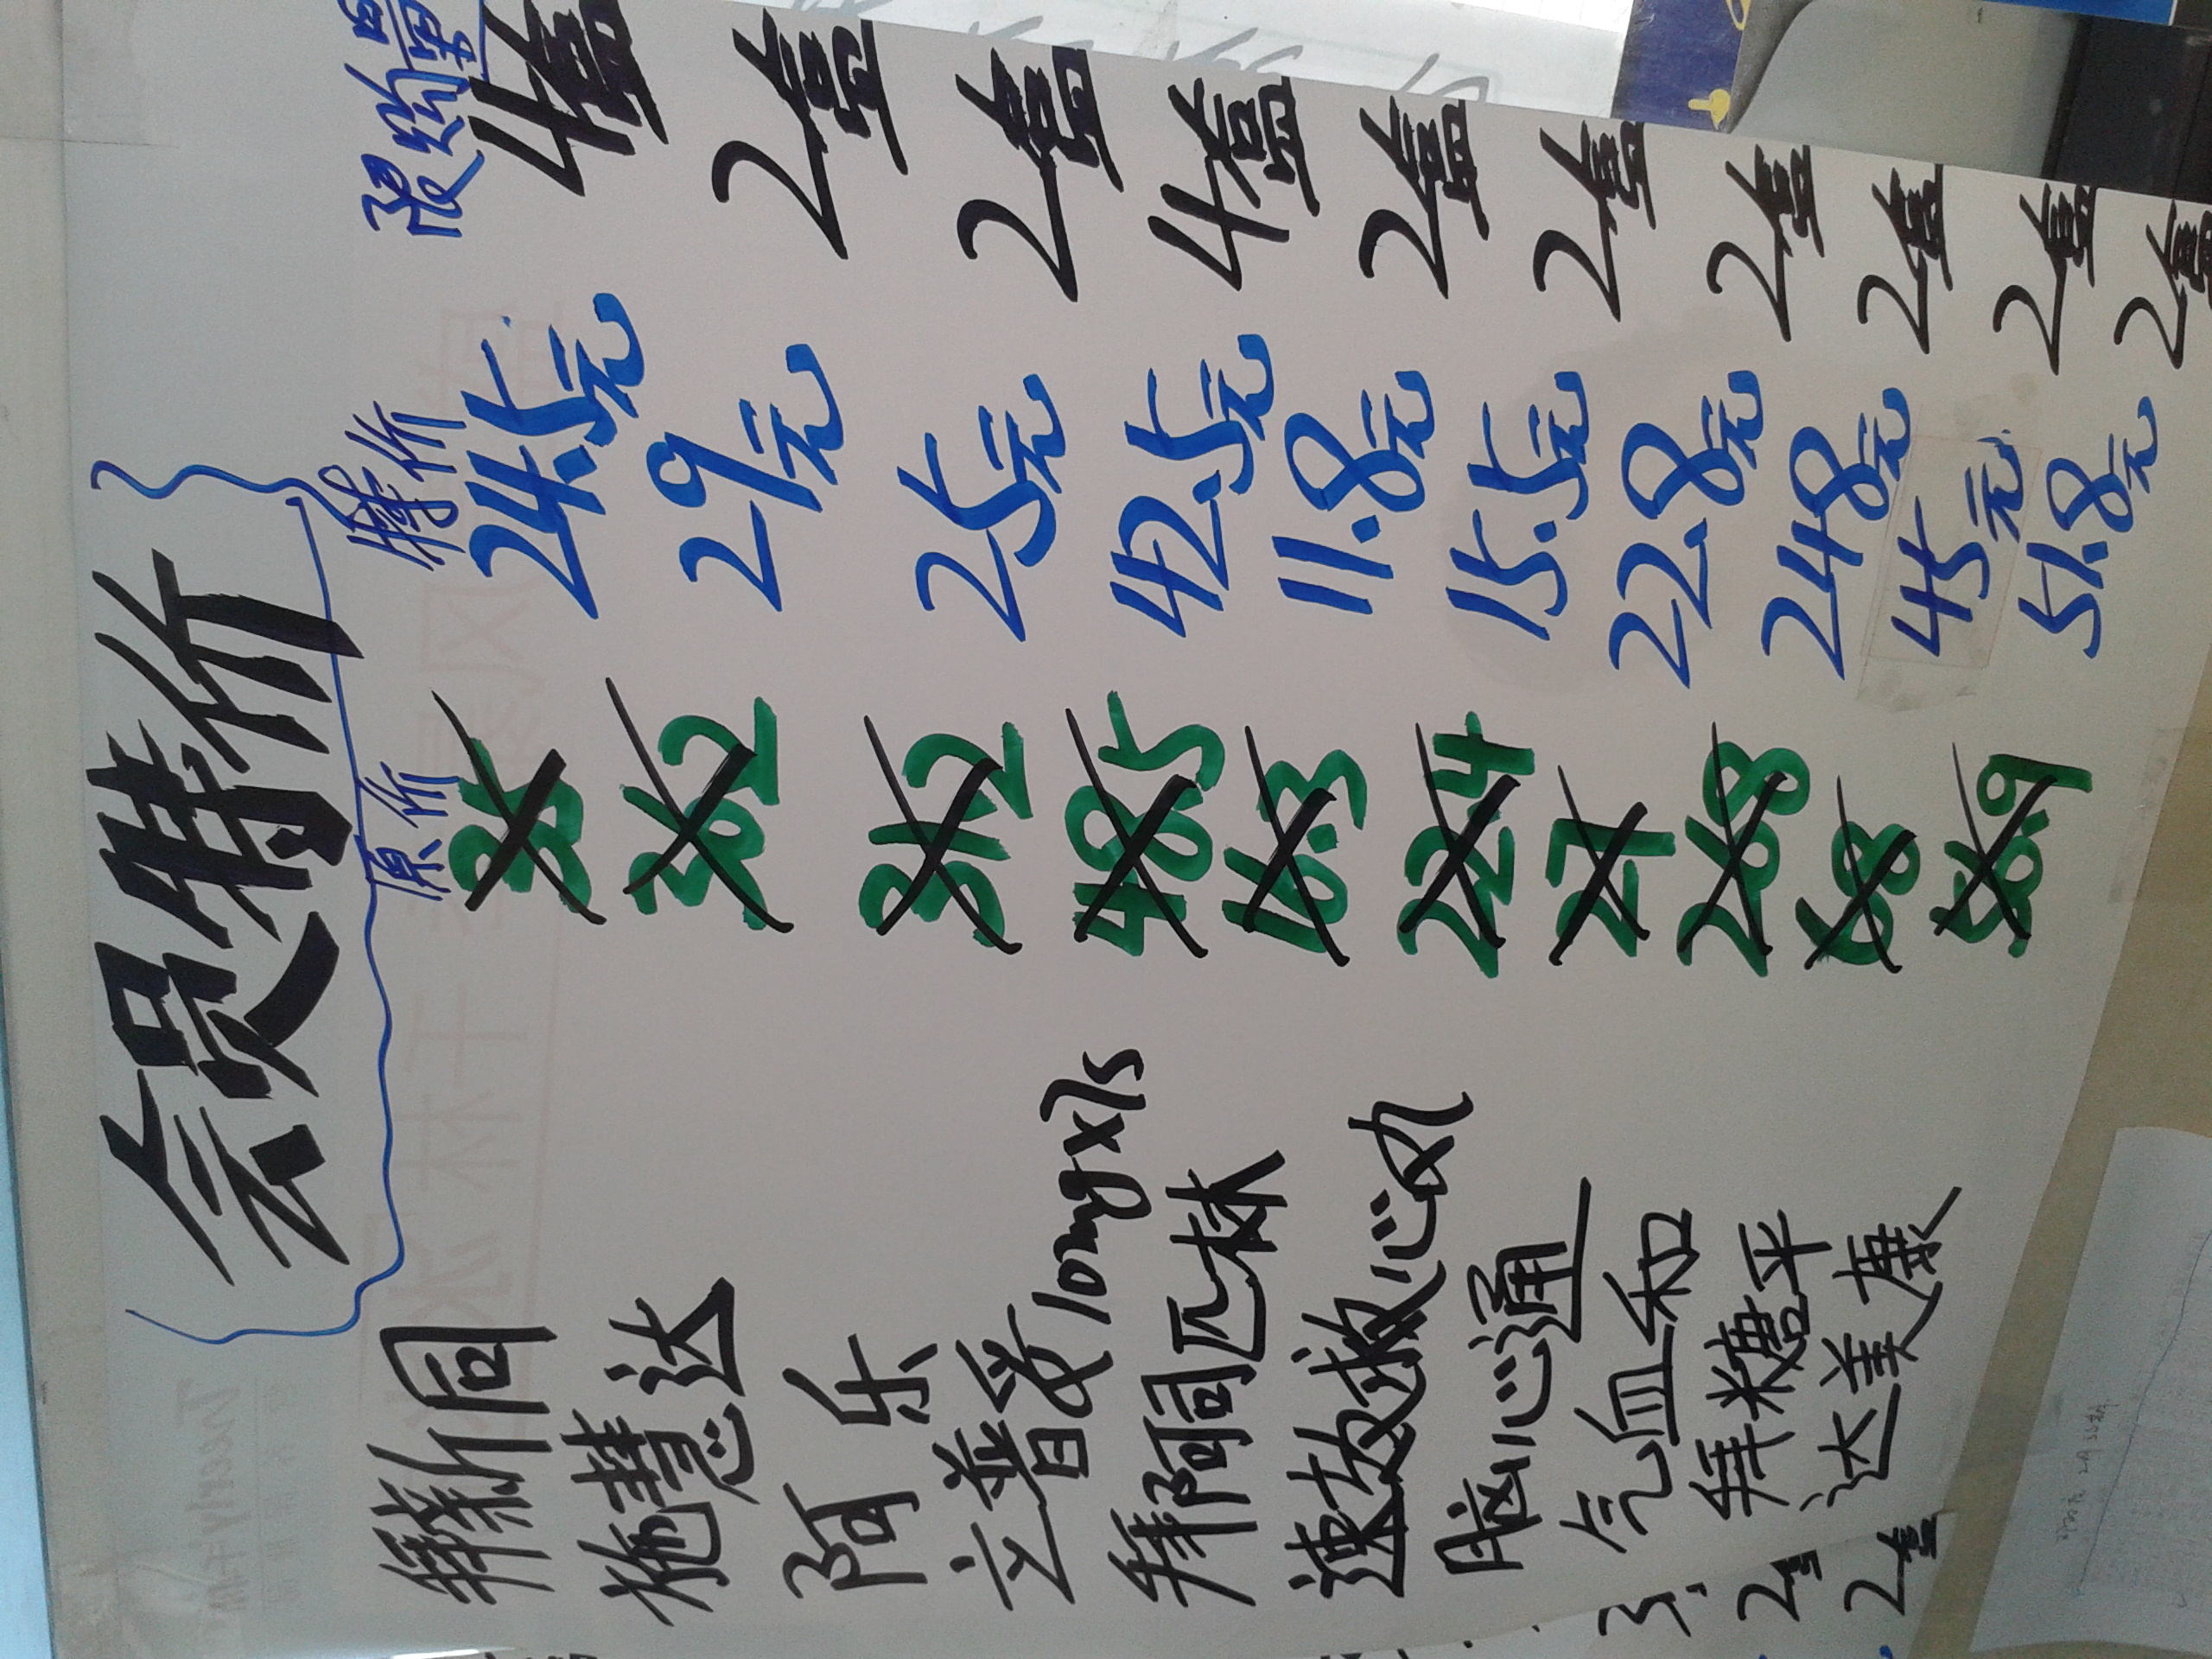 会员特价
原价 特价 限购
拜新同 35 24.5元 4盒
施慧达 36.2 29元 2盒
阿乐 31.2 25元 2盒
立普妥10mgx7s 48.5 42.5元 4盒
拜阿司匹林 16.3 11.8元 2盒
速效救心丸 22.4 15.5元 2盒
脑心通 27 22.8元 2盒
气血和 26.8 24.8元 2盒
拜糖平 68 45元 2盒
达美康 58.9 51.8元 2盒
2盒
2盒